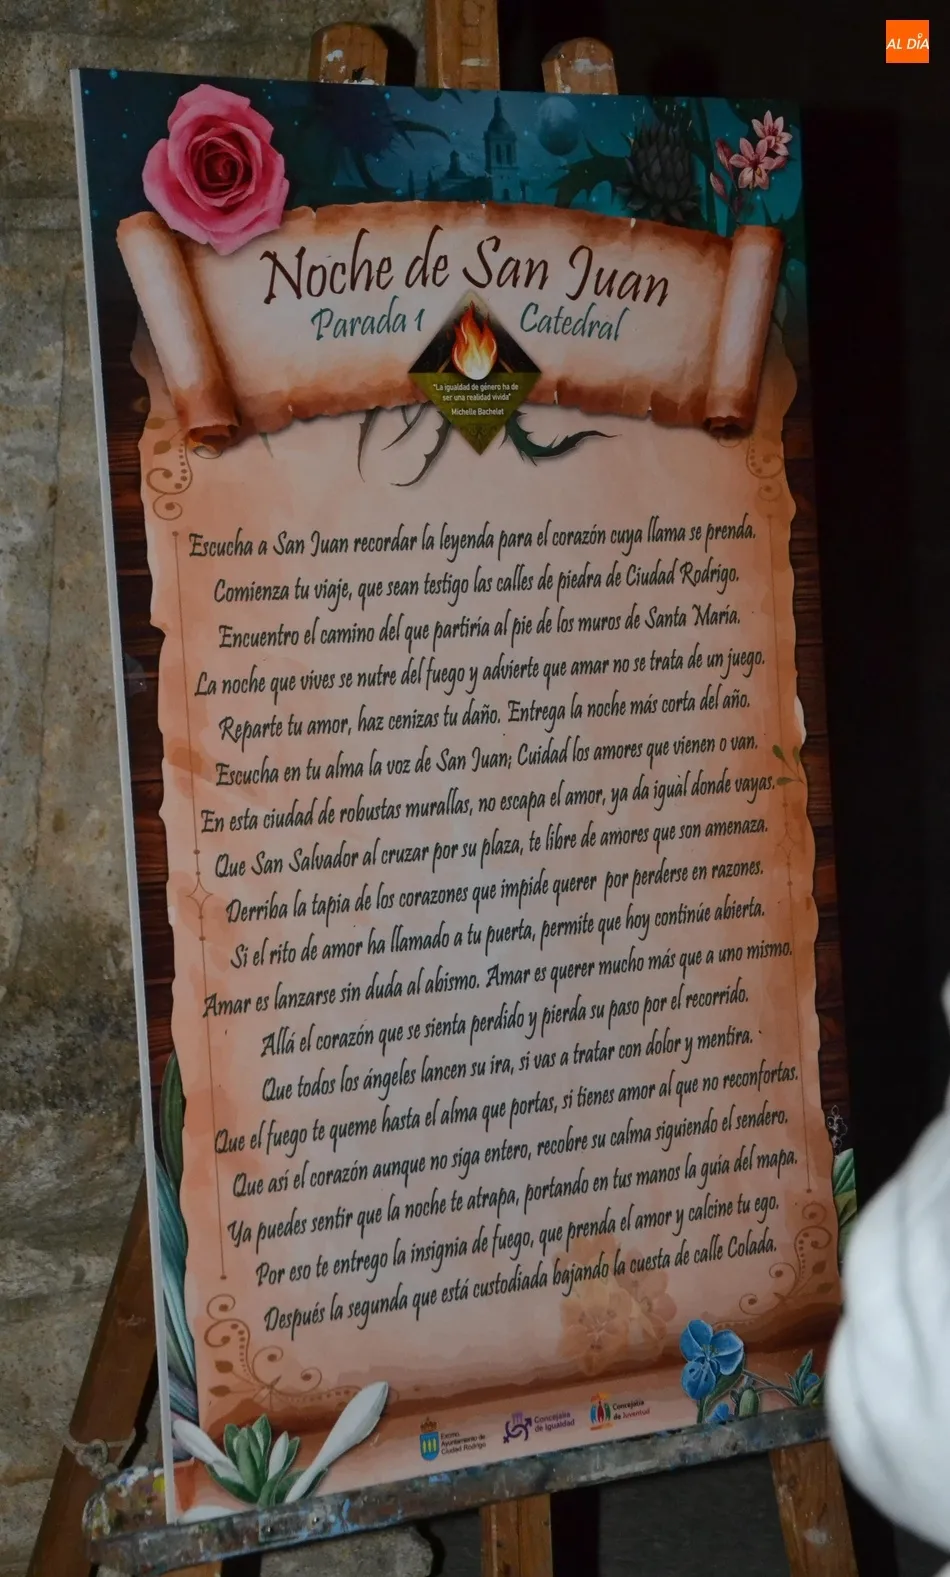 AL DÍA
Noche de San Juan
Parada 1 Catedral
"La igualdad de género ha de
ser una realidad vivida"
Michelle Bachelet
Escucha a San Juan recordar la leyenda para el corazón cuya llama se prenda.
Comienza tu viaje, que sean testigo las calles de piedra de Ciudad Rodrigo.
Encuentro el camino del que partiría al pie de los muros de Santa María.
La noche que vives se nutre del fuego y advierte que amar no se trata de un juego.
Reparte tu amor, haz cenizas tu daño. Entrega la noche más corta del año.
Escucha en tu alma la voz de San Juan; Cuidad los amores que vienen o van.
En esta ciudad de robustas murallas, no escapa el amor, ya da igual donde vayas.
Que San Salvador al cruzar por su plaza, te libre de amores que son amenaza.
Derriba la tapia de los corazones que impide querer por perderse en razones.
Si el rito de amor ha llamado a tu puerta, permite que hoy continúe abierta.
Amar es lanzarse sin duda al abismo. Amar es querer mucho más que a uno mismo.
Allá el corazón que se sienta perdido y pierda su paso por el recorrido.
Que todos los ángeles lancen su ira, si vas a tratar con dolor y mentira.
Que el fuego te queme hasta el alma que portas, si tienes amor al que no reconfortas.
Que así el corazón aunque no siga entero, recobre su calma siguiendo el sendero.
Ya puedes sentir que la noche te atrapa, portando en tus manos la guía del mapa.
Por eso te entrego la insignia de fuego, que prenda el amor y calcine tu ego.
Después la segunda que está custodiada bajando la cuesta de calle Colada.
Excmo.
Ayuntamiento de
Ciudad Rodrigo
Concejalía
de Igualdad
Concejalía
de Juventud